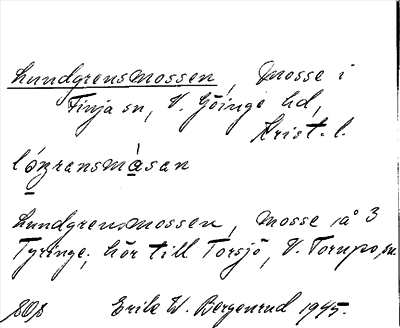 Lundgrensmossen, Mosse i
Finja sn, V. Göinge hd,
Krist. l.
Lundgrensmossen, mosse på 3
Tyringe, hör till Torsjö, V. Torups sn.
Erik W. Bergenrud 1945.